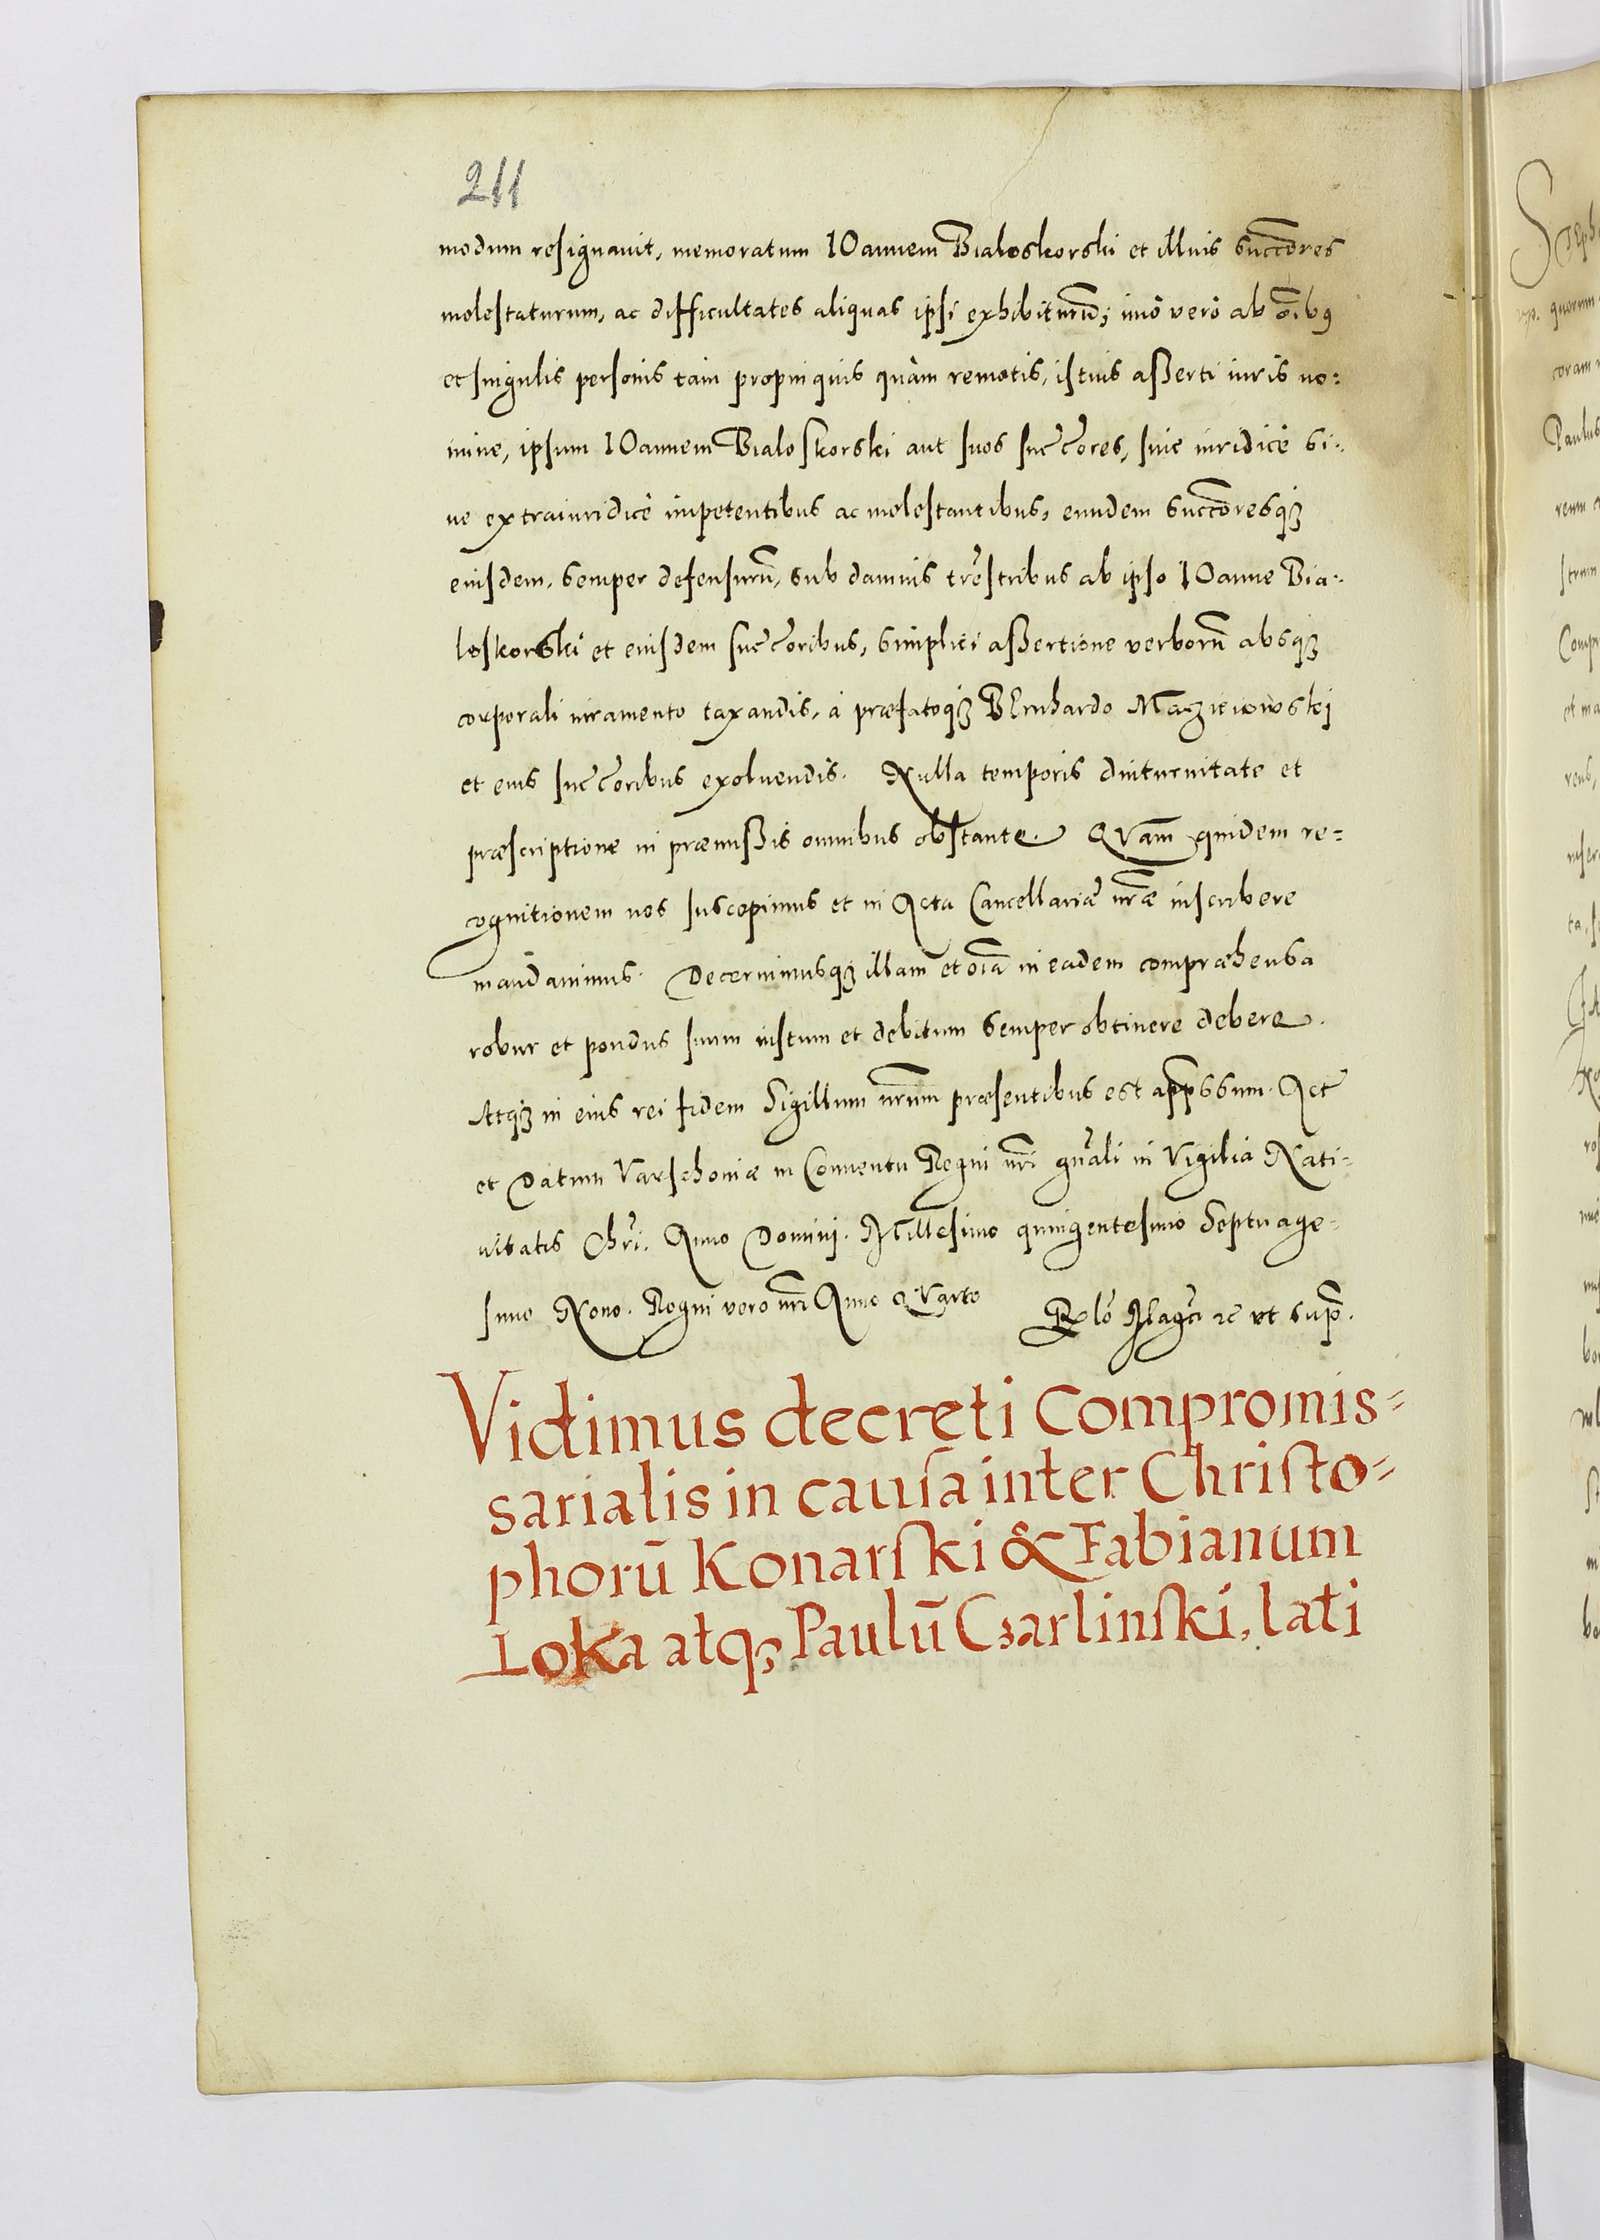 211
modum resignauit, memoratum IOannem Bialoskorski et illius succōres
molestaturum, ac difficultates aliquas ipsi exhibiturū; imò verò ab oībꝯ
et singulis personis tam propinquis quàm remotis, istius asserti iuris no:
mine, ipsum IOannem Bialoskorski aut suos succōres, siue iuridicè si:
ue extraiuridicè impetentibus ac molestantibus, eundem succōresqꝫ
eiusdem, semper defensurū, sub damnis trēstribus ab ipso IOanne Bia:
loskorski et eiusdem succōribus, simplici assertione verborū absqꝫ
corporali iuramento taxandis, à præfatoqꝫ BErnhardo Maczieiowskj
et eius succōribus exoluendis. Nulla temporis diuturnitate et
præscriptione in præmissis omnibus obstante. QVam quidem re=
cognitionem nos suscepimus et in Acta Cancellariæ nr̄æ inscribere
mandauimus. Decernimusqꝫ illam et oīa in eadem compræhensa
robur et pondus suum iustum et debitum semper obtinere debere.
Atqꝫ in eius rei fidem Sigillum nr̄um præsentibus est appssum. Act̄
et Datum Varschoniæ in Conuentu Regni nr̄i gn̄ali in Vigilia Nati=
uitatis Chr̄i. Anno Domini. Millesimo quingentesimo Septuage=
simo Nono. Regni vero nr̄i Anno QVarto
Rlō Magcī ꝛc vt supᷓ.
Vidimus decreti Compromis=
sarialis in causa inter Christo=
phorū Konarski & Fabianum
Loka atqꝫ Paulū Czarlinski, lati